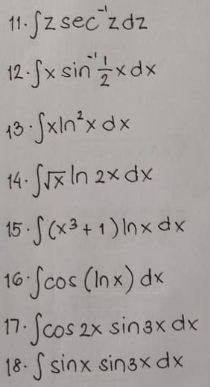 11. ∫z sec⁻¹z dz
12. ∫x sin⁻¹ ½ x dx
13. ∫xln²x dx
14. ∫√x ln 2x dx
15. ∫(x³ + 1) lnx dx
16. ∫cos (lnx) dx
17. ∫cos 2x sin3x dx
18. ∫ sinx sin3x dx